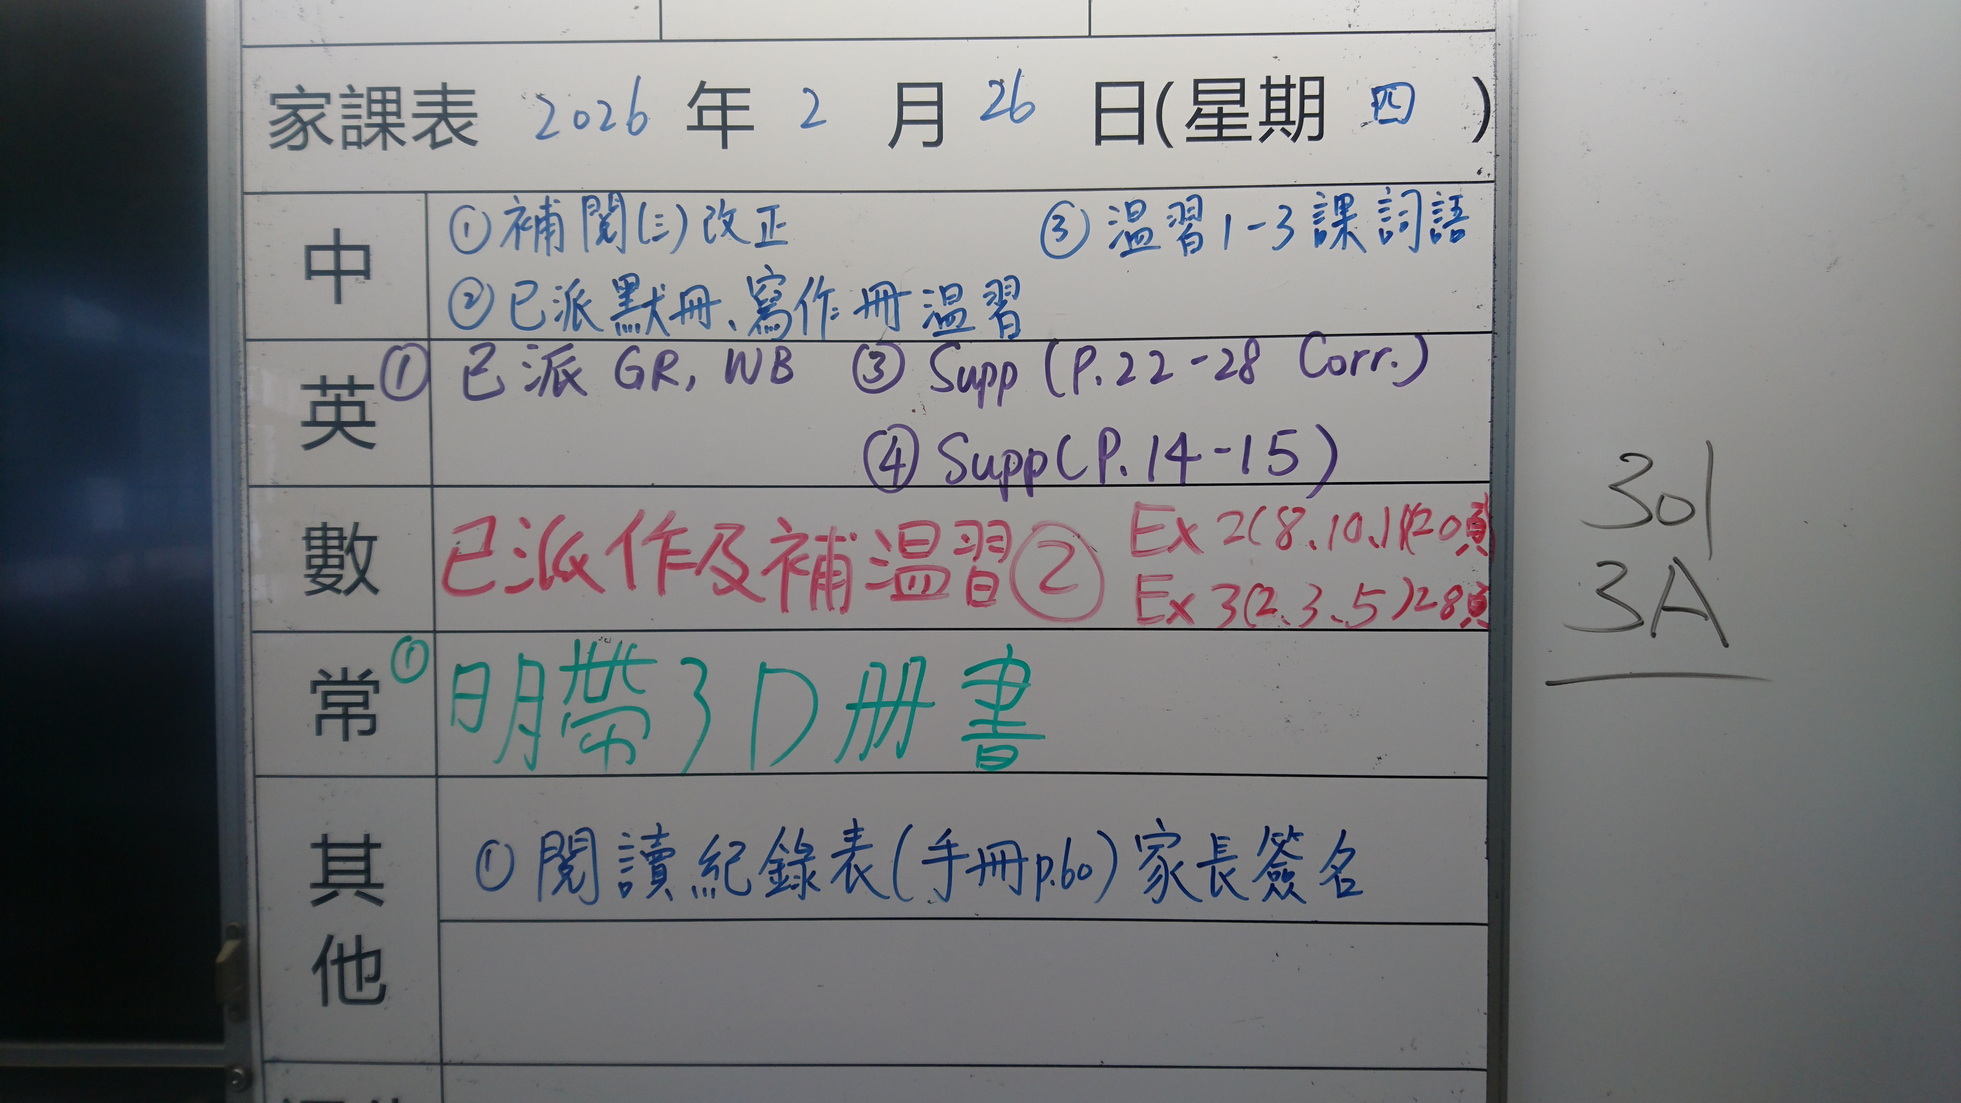 家課表 2026 年 2 月 26 日(星期 四 )
中
①補閱(三)改正 ③溫習1-3課詞語
②已派默冊、寫作冊溫習
英
① 已派 GR, WB ③ Supp (P.22-28 Corr.)
④ Supp(P.14-15)
數
已派作及補溫習② Ex 2(8、10、11)20頁
Ex 3(2、3、5)28頁
常
① 明帶3D冊書
其他
①閱讀紀錄表(手冊p.60)家長簽名
301
3A